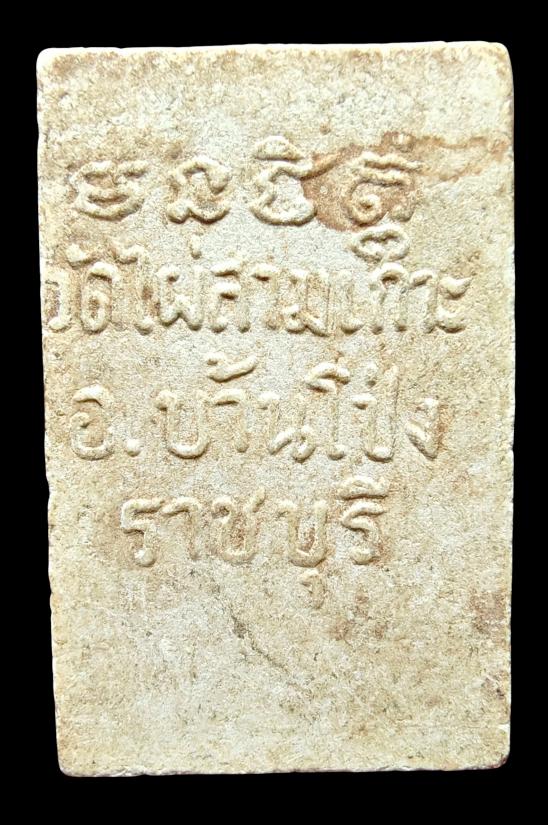 วัดไผ่สามเกาะ
อ.บ้านโป่ง
ราชบุรี